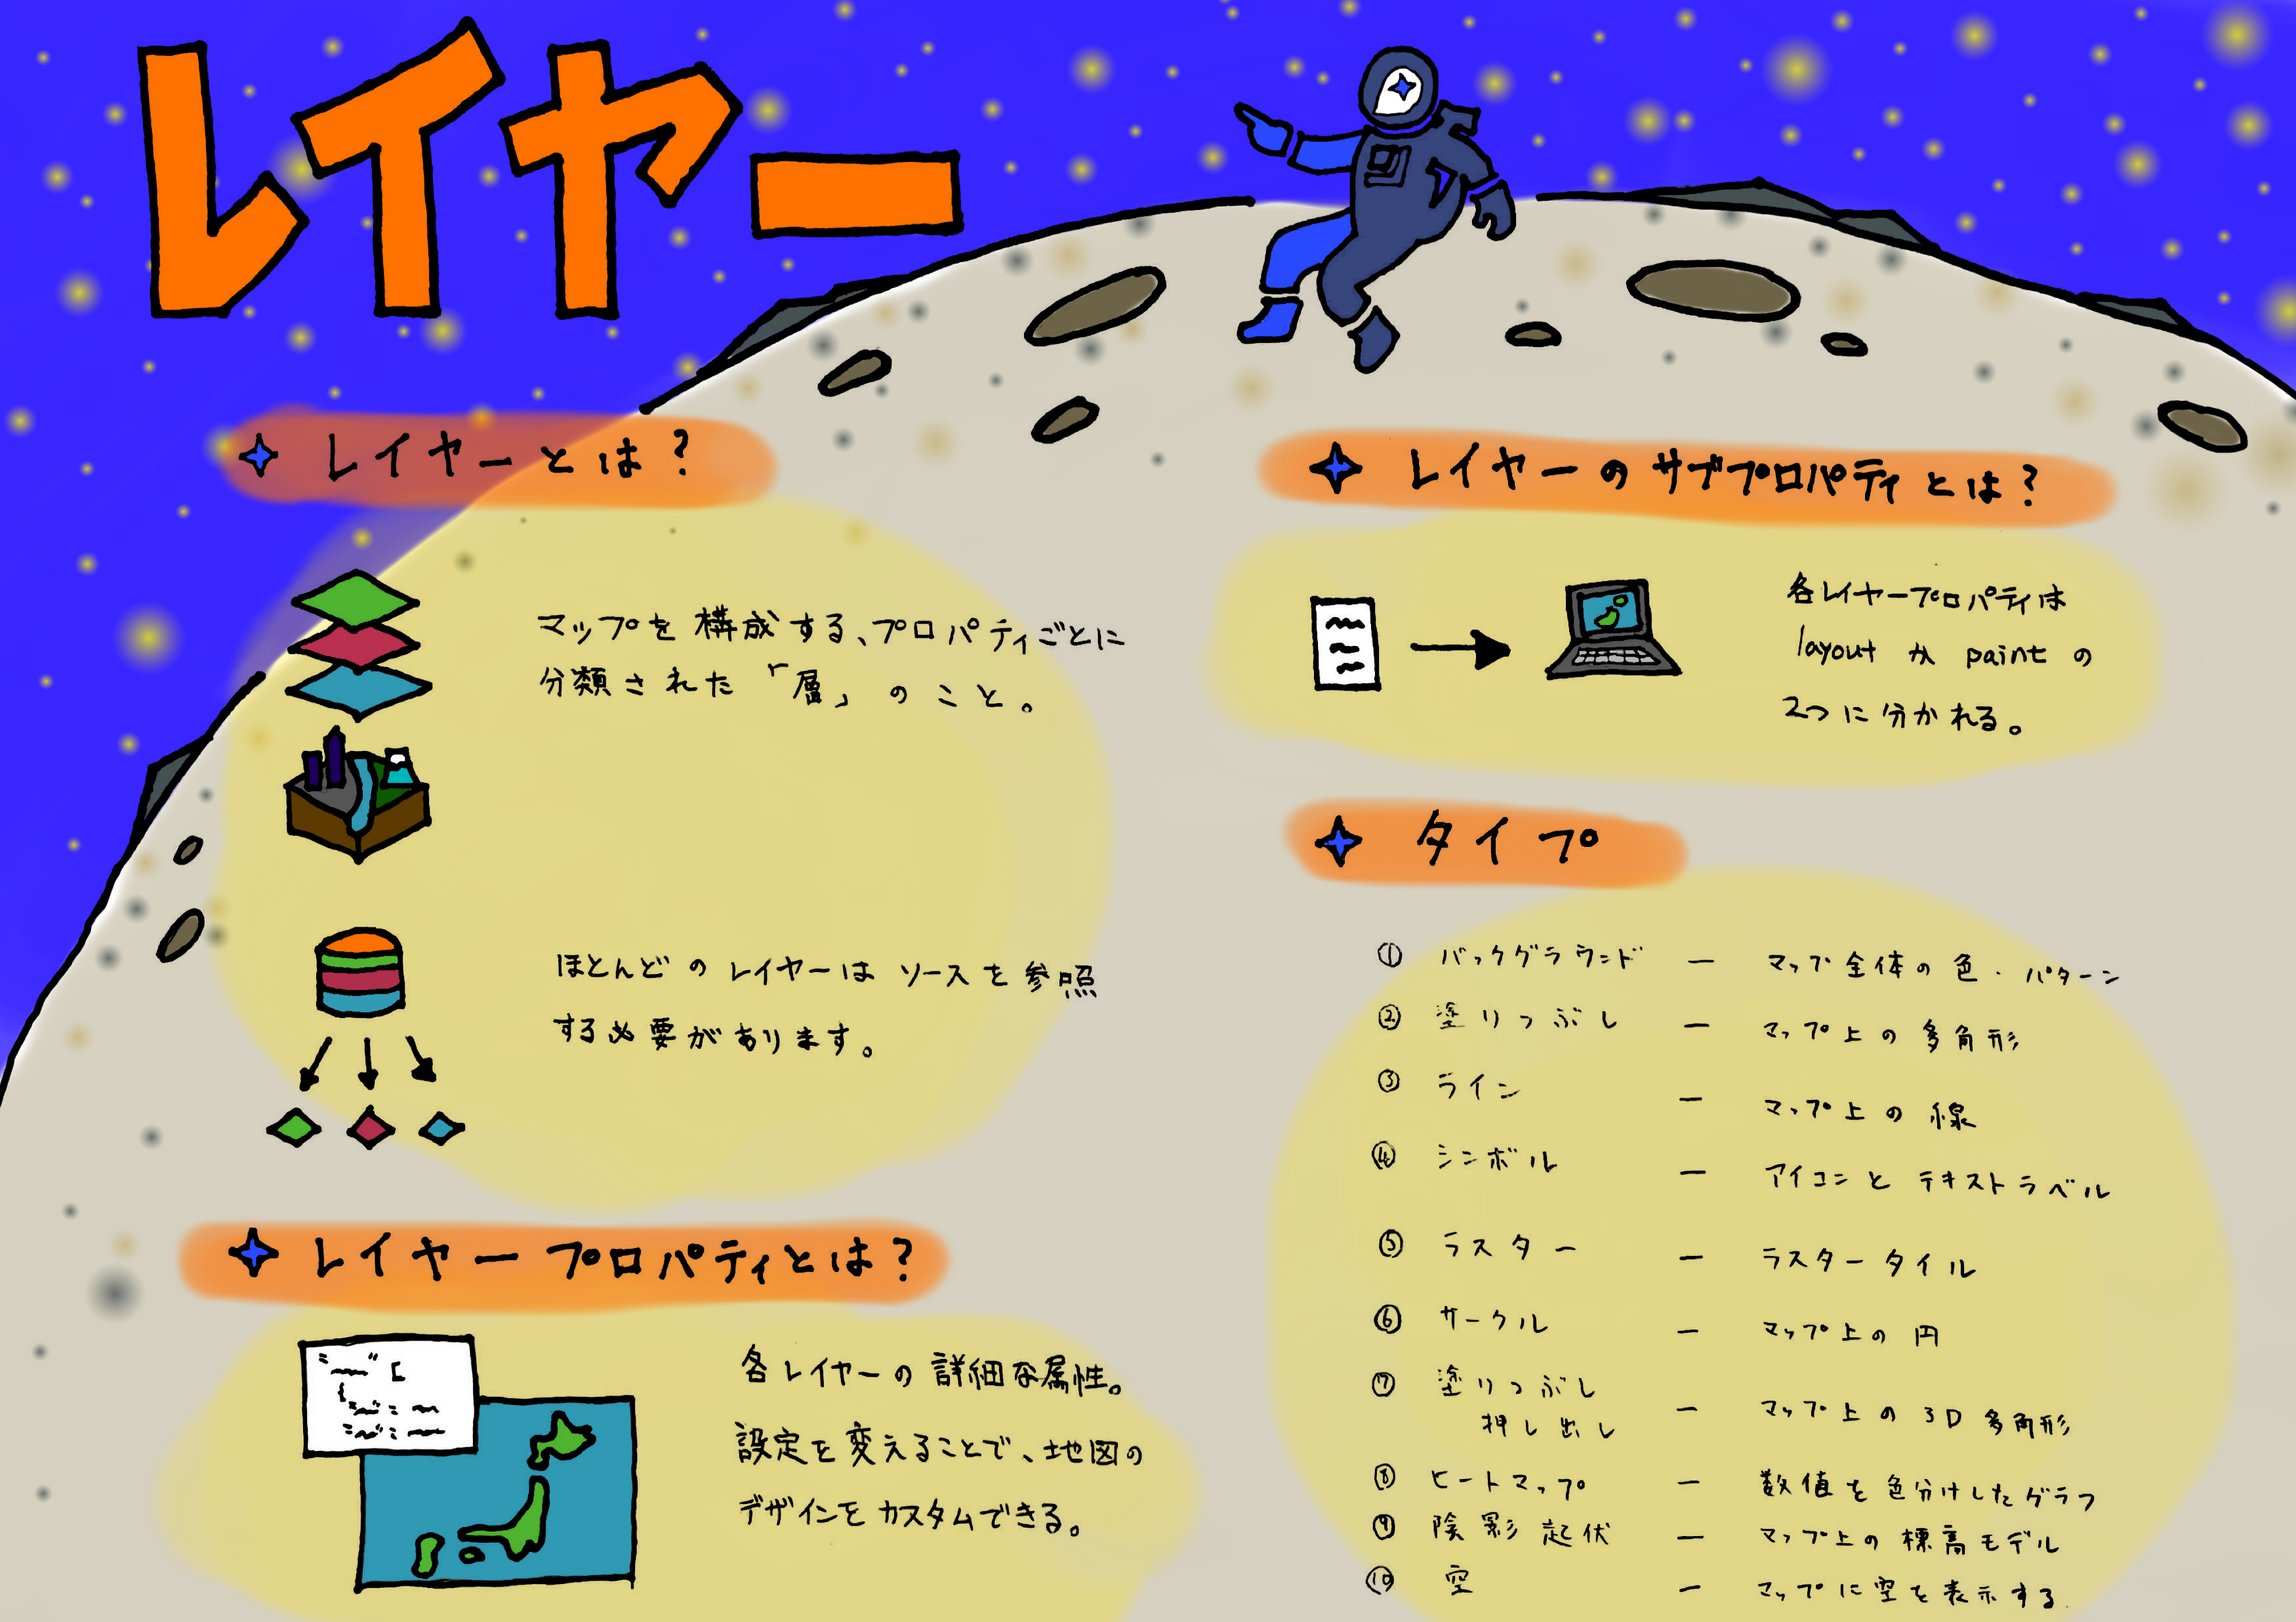 レイヤー
レイヤーとは？
マップを構成する、プロパティごとに
分類された「層」のこと。
ほとんどのレイヤーはソースを参照
する必要があります。
レイヤープロパティとは？
各レイヤーの詳細な属性。
設定を変えることで、地図の
デザインをカスタムできる。
レイヤーのサブプロパティとは？
各レイヤープロパティは
layout か paint の
2つに分かれる。
タイプ
① バックグラウンド ー マップ全体の色・パターン
② 塗りつぶし ー マップ上の多角形
③ ライン ー マップ上の線
④ シンボル ー アイコンとテキストラベル
⑤ ラスター ー ラスタータイル
⑥ サークル ー マップ上の円
⑦ 塗りつぶし
押し出し ー マップ上の3D多角形
⑧ ヒートマップ ー 数値を色分けしたグラフ
⑨ 陰影起伏 ー マップ上の標高モデル
⑩ 空 ー マップに空を表示する